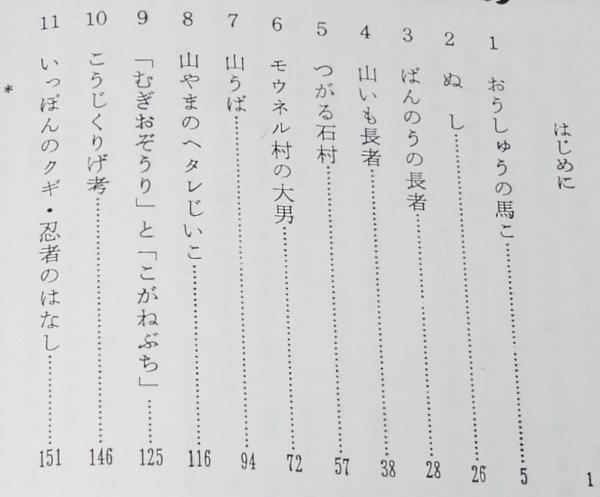 はじめに 1
1 おうしゅうの馬こ……………… 5
2 ぬし……………… 26
3 ばんのうの長者……………… 28
4 山いも長者……………… 38
5 つがる石村……………… 57
6 モウネル村の大男……………… 72
7 山うば……………… 94
8 山やまのヘタレじいこ……………… 116
9 「むぎおぞうり」と「こがねぶち」…… 125
10 こうじくりげ考……………… 146
11 いっぽんのクギ・忍者のはなし……………… 151
*